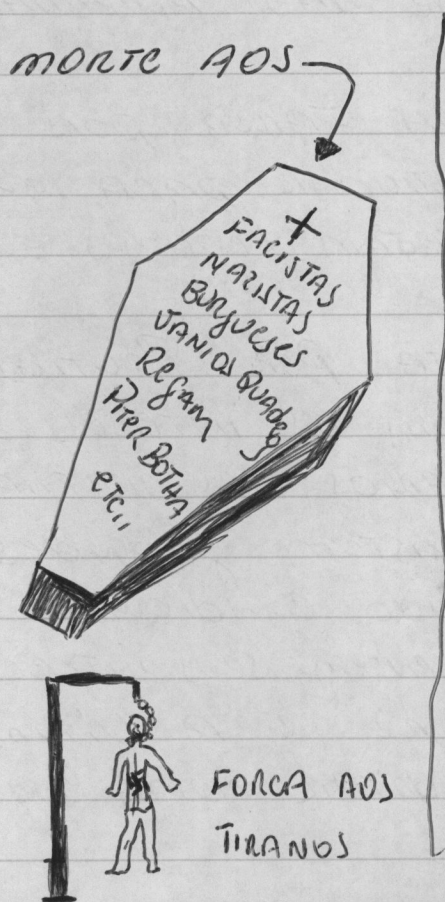 MORTE AOS
FACISTAS
NAZISTAS
BURGUESES
JANIOS QUADROS
REGAM
PITER BOTHA
ETC,,
FORCA AOS
TIRANOS